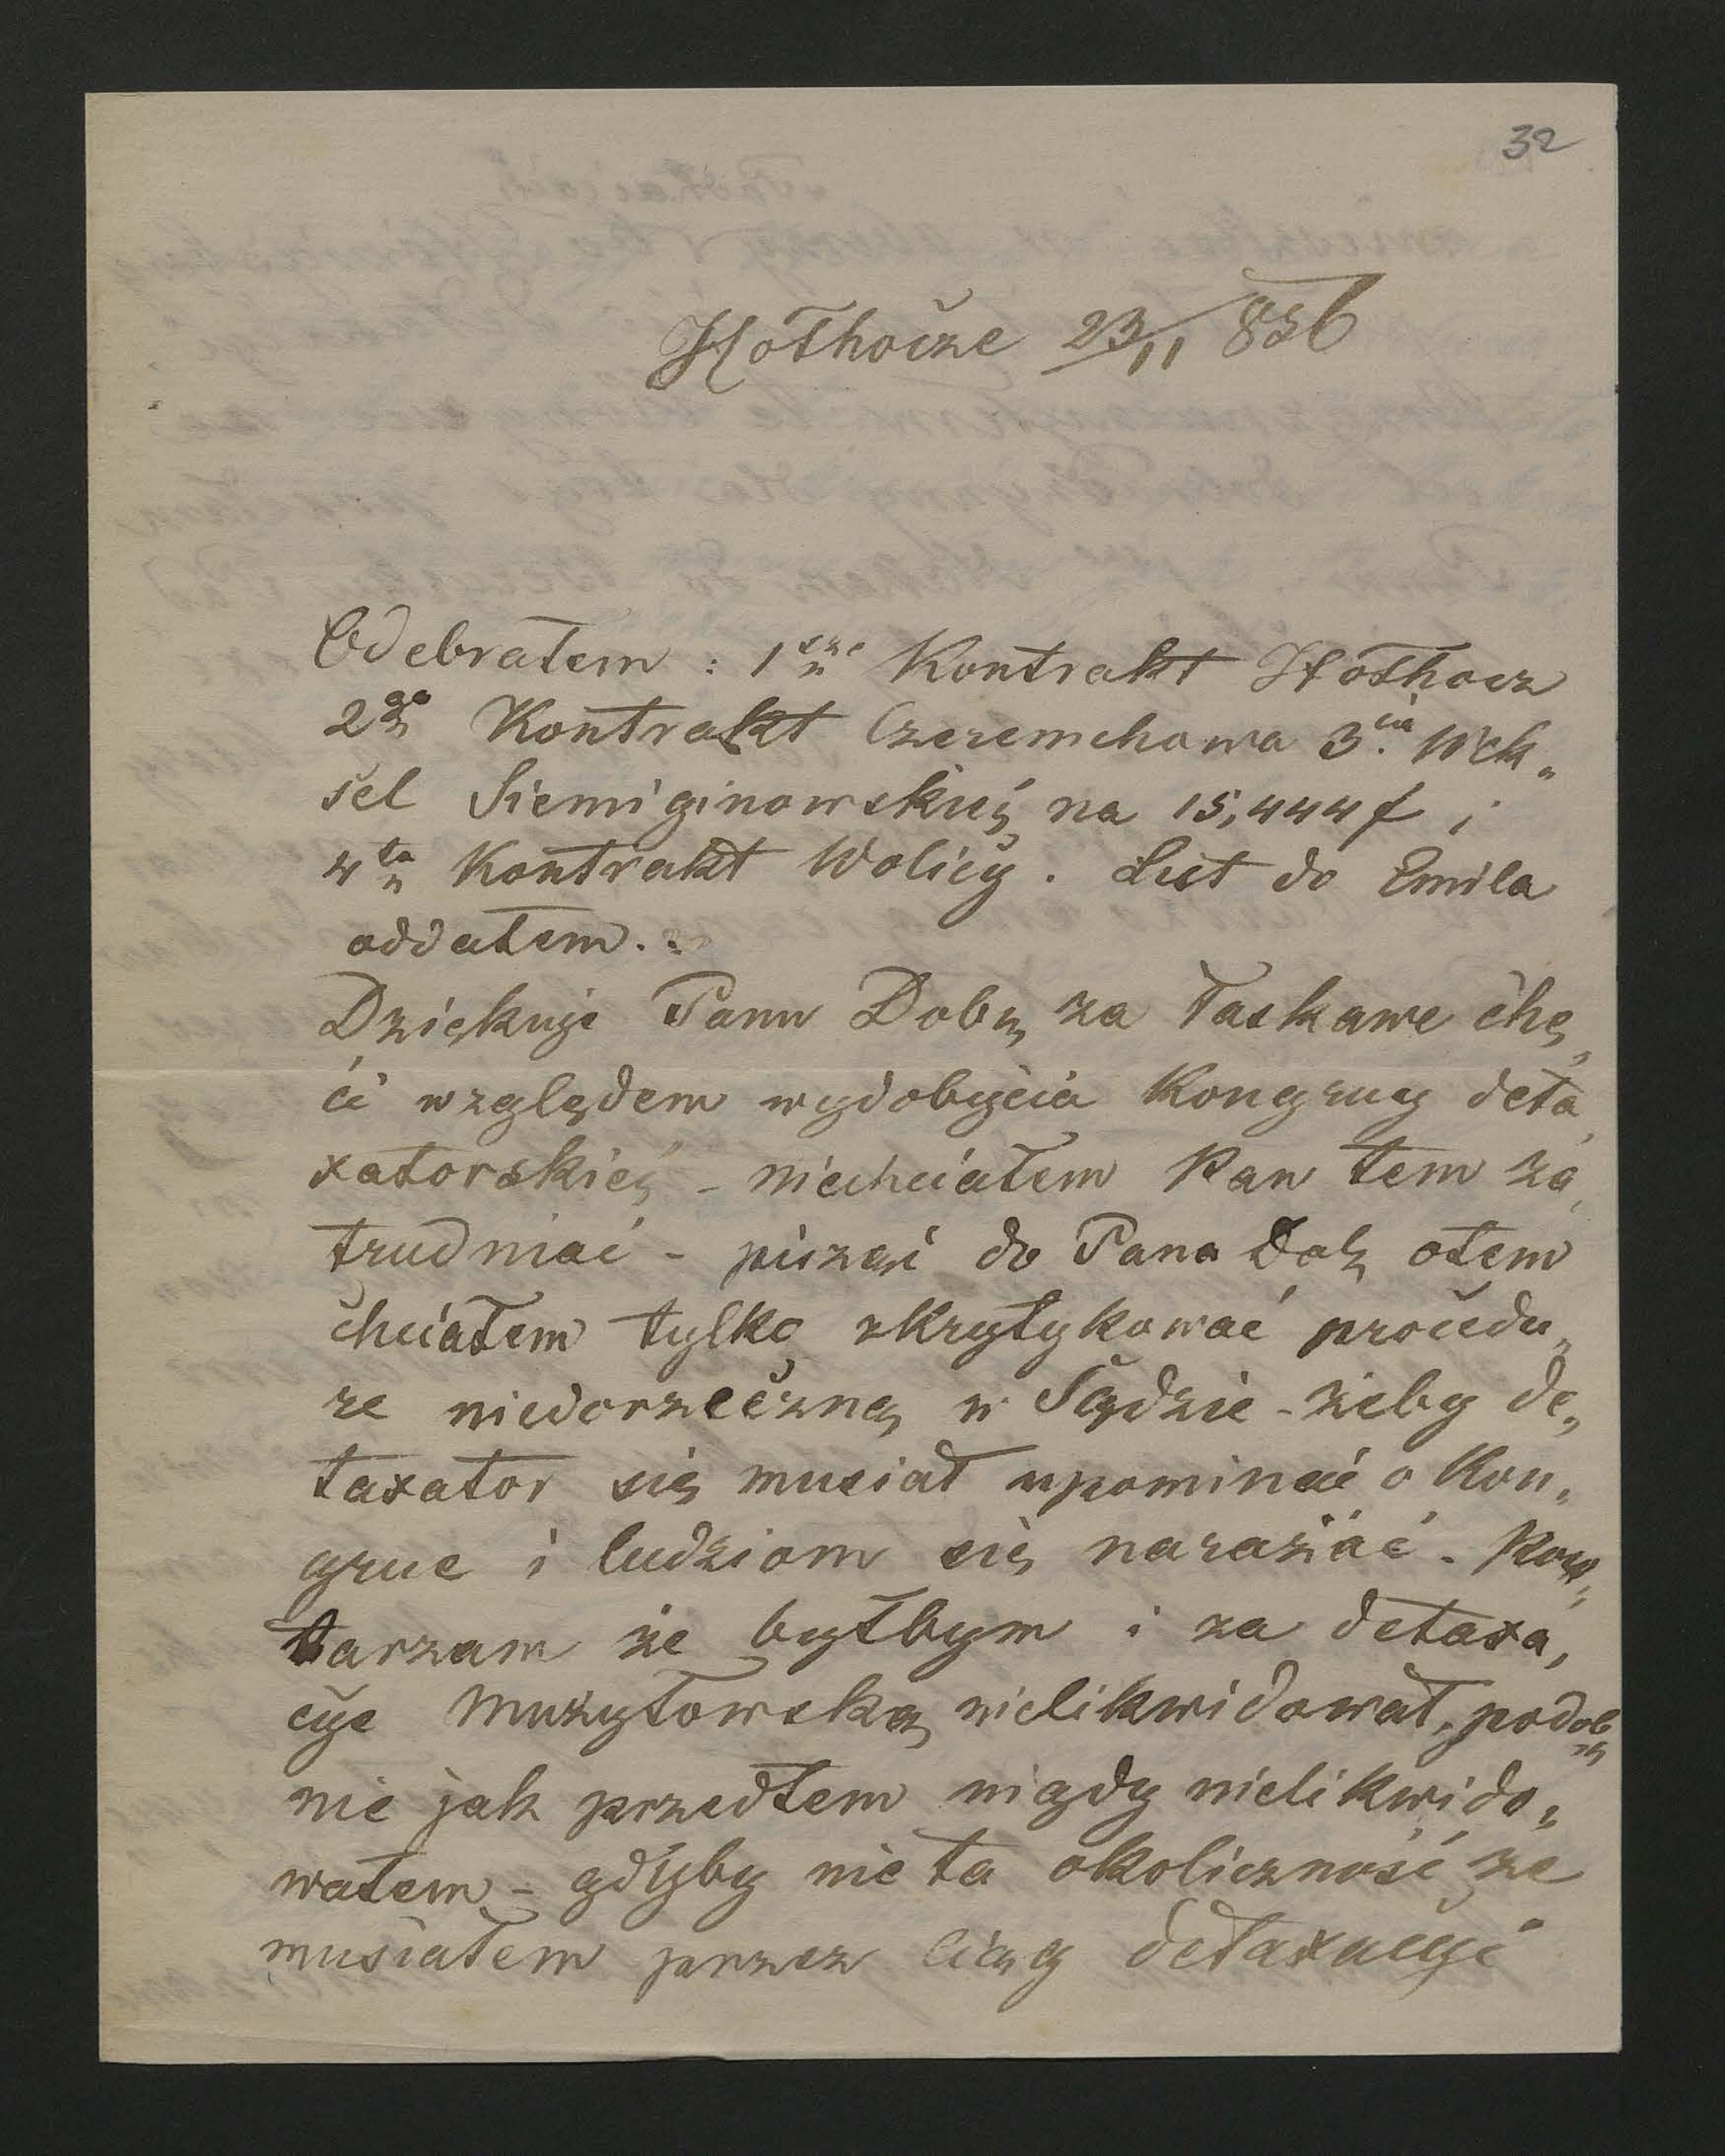 32
Hołhocze 23/11 836
Odebrałem : 1sze Kontrakt Hołhocz
2go Kontrakt Czeremchowa 3cia Wek„
sel Siemiginowskiej na 15,444 f i
4ta Kontrakt Wolicy . List do Emila
oddałem .
Dziękuję Panu Dobr za łaskawe chę„
ci względem wydobycia Kongruy deta„
xatorskiej – niechciałem Panu tem za„
trudniać – pisząc do Pana Dob otem
chciałem tylko skrytykować procedu„
re niedorzeczną w Sądzie – żeby de„
taxator się musiał upominać o Kon„
grue i ludziom się narażać . Pow„
tarzam że byłbym i za detaxa„
cye Mużyłowską nielikwidował, podob„
nie jak przedtem nigdy nielikwido„
wałem – gdyby nie ta okoliczność że
musiałem przez ciąg detaxacyi